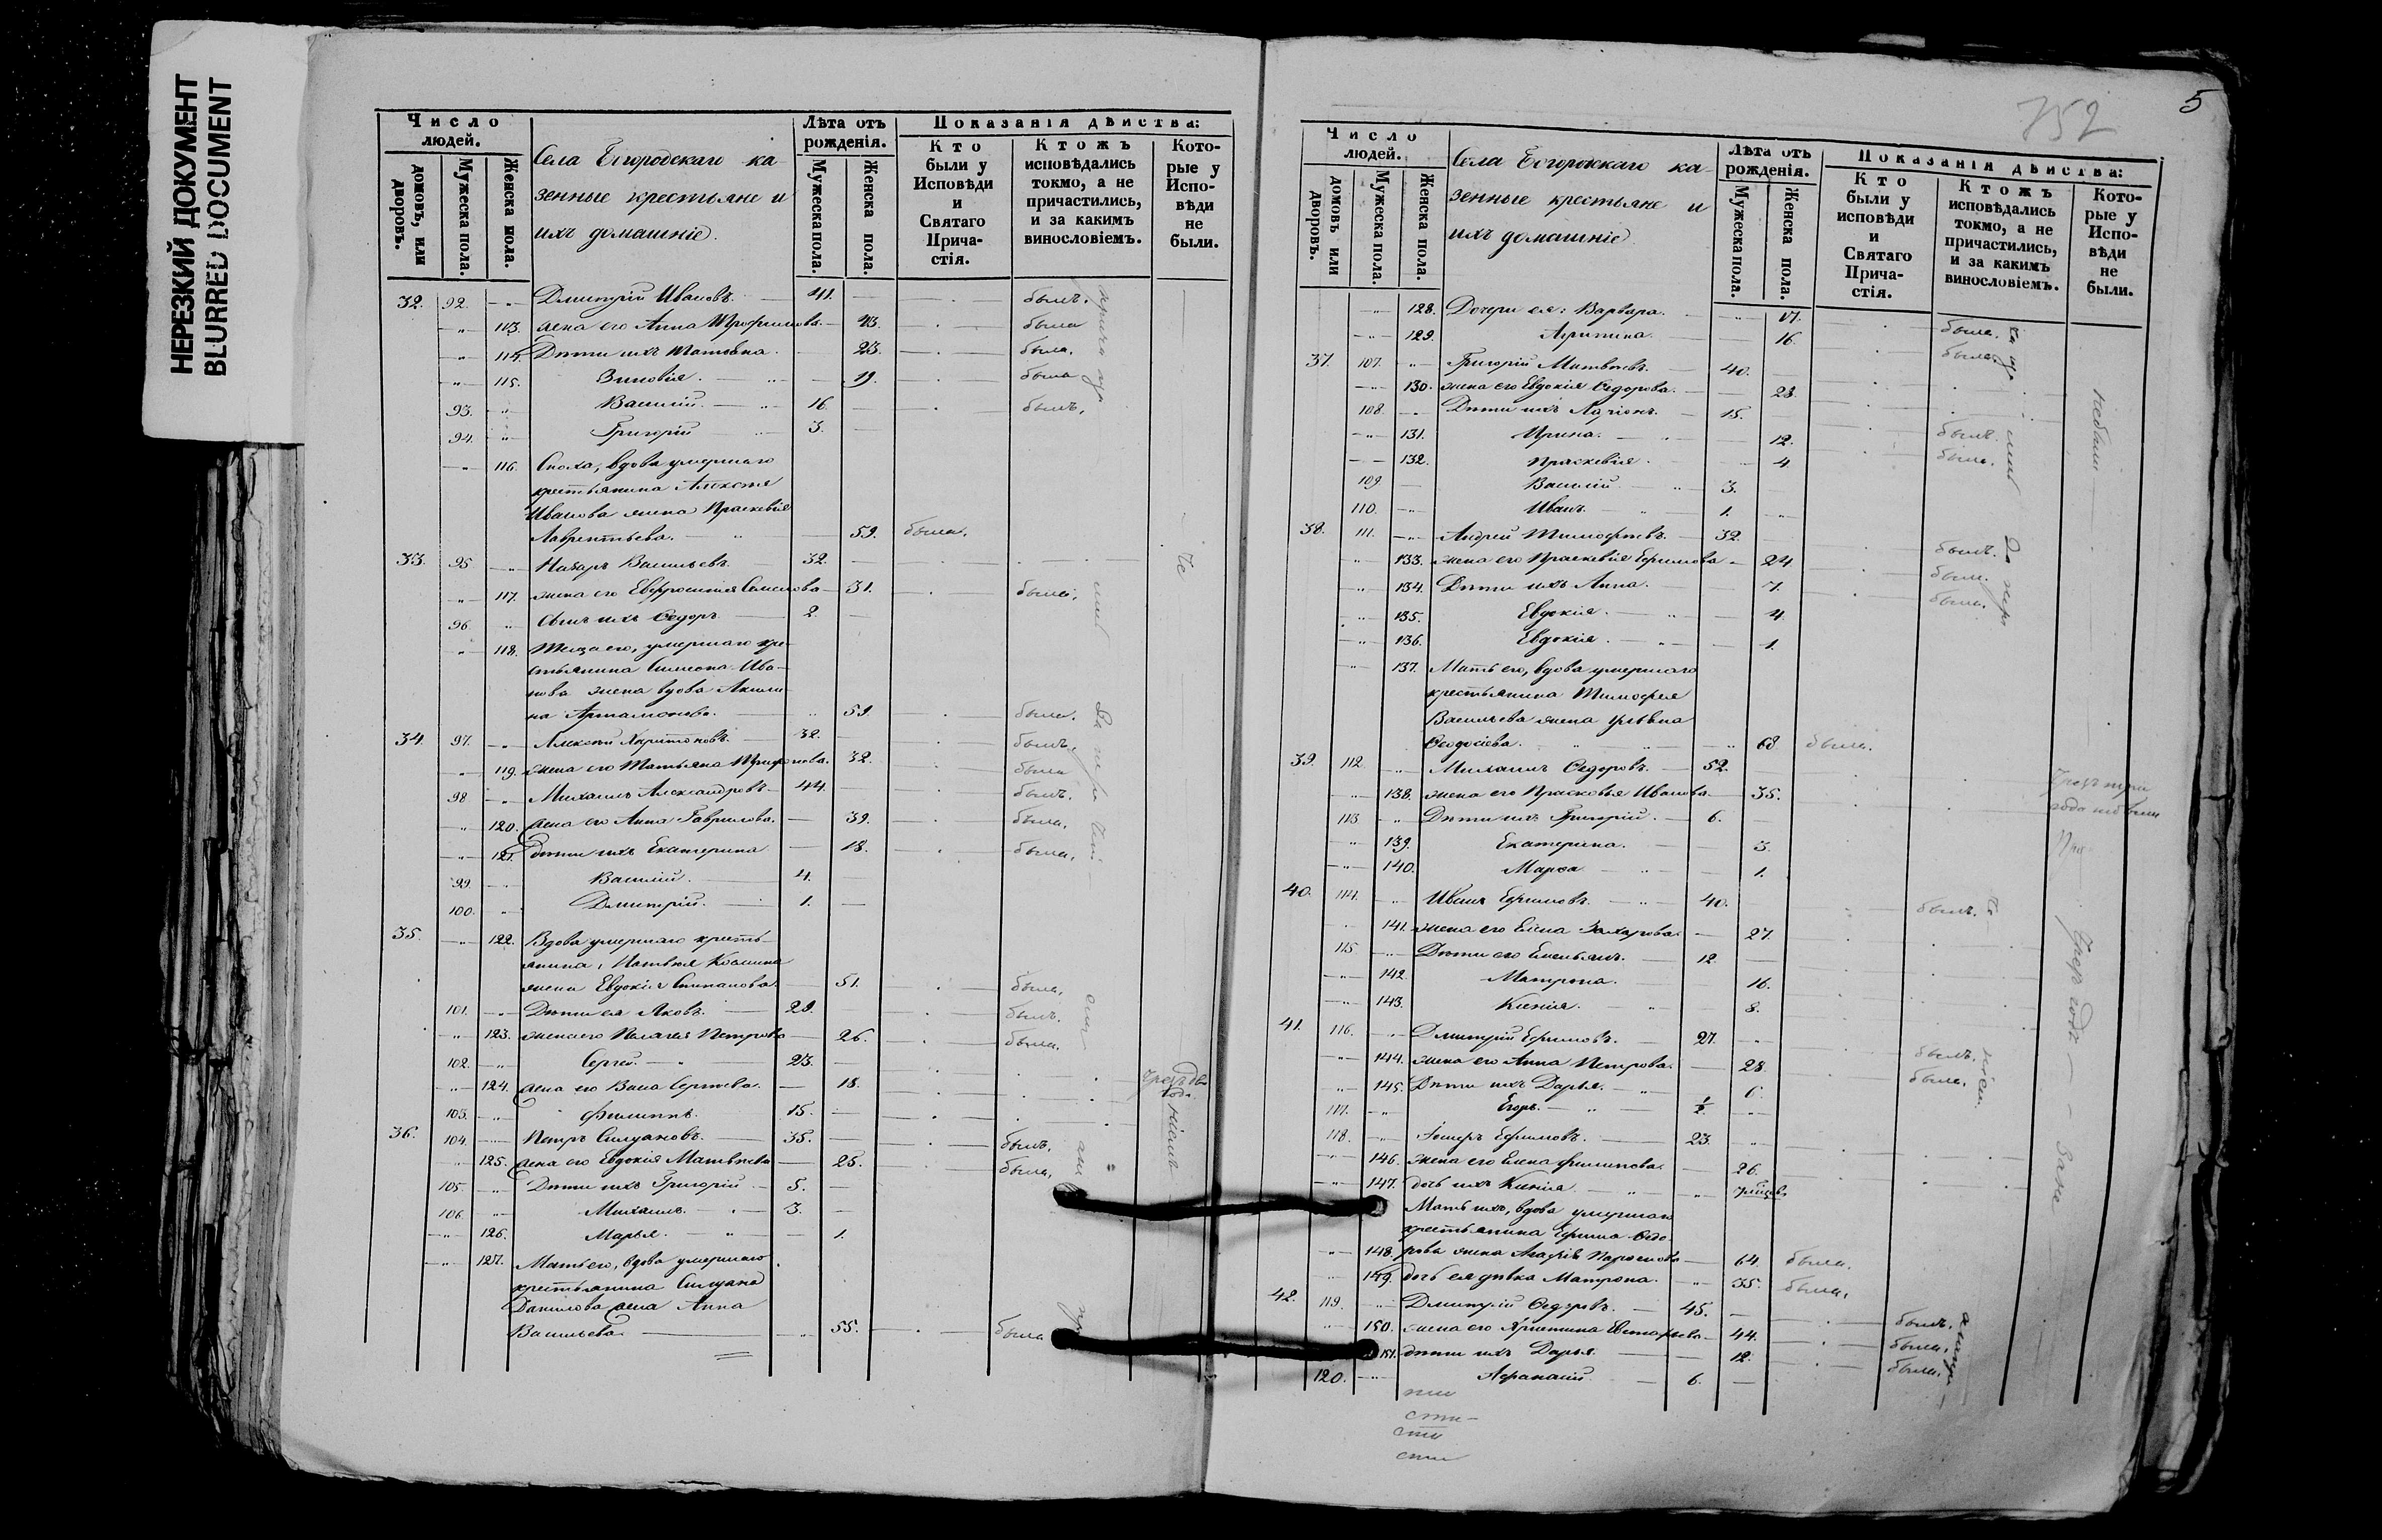 НЕРЕЗКИЙ ДОКУМЕНТ
BLURRED DOCUMENT
Число людей.
домовъ, или дворовъ.
Мужеска пола.
Женска пола.
Села Богородскаго ка-
зенные крестьяне и
ихъ домашніе.
Лѣта отъ рожденія.
Мужеска пола.
Женска пола.
Показанія дѣйства:
Кто были у Исповѣди и Святаго Прича-стія.
Ктожъ исповѣдались токмо, а не причастились, и за какимъ винословіемъ.
Кото-рые у Испо-вѣди не были.
32. 92. Дмитрій Ивановъ. 41. былъ.
113. жена его Анна Трофимова. 43. была
114. Дѣти ихъ Татьяна. 23. была.
115. Зиновія. 19. была
93. Василій. 16. былъ.
94. Григорій 3.
116. Сноха, вдова умершаго
крестьянина Алексея
Иванова жена Праскевія
Лаврентьева. 59. была.
33. 95. Назаръ Васильевъ. 32.
117. жена его Евфросинія Семенова 31. была.
96. Сынъ ихъ Ѳедоръ 2.
118. Теща его, умершаго кре-
стьянина Симеона Ива-
нова жена вдова Акили-
на Артамонова. 59. была.
34. 97. Алексей Харитоновъ. 32. былъ.
119. жена его Татьяна Трифонова. 32. была
98 Михаилъ Александровъ. 44. былъ.
120. жена его Анна Гаврилова. 39. была.
121. дѣти ихъ Екатерина 18. была.
99. Василій. 4.
100. Дмитрій. 1.
35. 122. Вдова умершаго кресть-
янина, Матвея Косьмина
жена Евдокія Степанова. 51. была.
101. Дѣти ея Яковъ. 29. былъ.
123. жена его Пелагея Петрова 26. была.
102. Сергей. 23.
124. жена его Васса Сергеева. 18.
103. Филиппъ. 15.
36. 104. Петръ Силуановъ. 35. былъ.
125. жена его Евдокія Матвеева 25. была.
105. Дѣти ихъ Григорій 5.
106. Михаилъ. 3.
126. Марья. 1.
127. Мать его, вдова умершаго
крестьянина Силуана
Данилова жена Анна
Васильева. 55. была
752
5
Число людей.
домовъ или дворовъ.
Мужеска пола.
Женска пола.
Села Богородскаго ка-
зенные крестьяне и
ихъ домашніе
Лѣта отъ рожденія.
Мужеска пола.
Женска пола.
Показанія дѣйства:
Кто были у исповѣди и Святаго Прича-стія.
Ктожъ исповѣдались токмо, а не причастились, и за какимъ винословіемъ.
Кото-рые у Испо-вѣди не были.
128. Дочери ея: Варвара. 17. была.
129. Агрипина. 16. была.
37. 107. Григорій Матвеевъ. 40.
130. жена его Евдокія Ѳедорова. 28.
108. Дѣти ихъ Ларіонъ. 15. былъ.
131. Ирина. 12. была.
132. Праскевія. 4.
109. Василій. 3.
110. Иванъ. 1.
38. 111. Андрей Тимофеевъ. 32. былъ.
133. жена его Праскевія Ефимова 24 была.
134. Дѣти ихъ Анна. 7. была.
135. Евдокія. 4.
136. Евдокія. 1.
137. Мать его, вдова умершаго
крестьянина Тимофея
Васильева жена Ульяна
Ѳеодосіева. 68 была.
39. 112. Михаилъ Ѳедоровъ. 52.
138. жена его Прасковья Иванова 35.
113 Дѣти ихъ Григорій. 6.
139. Екатерина. 3.
140. Марѳа 1.
40. 114. Иванъ Ефимовъ. 40. былъ.
141. жена его Елена Захарова. 27.
115 Дѣти его Емельянъ. 12.
142. Матрона. 16.
143. Ксенія. 8.
41. 116. Дмитрій Ефимовъ. 27. былъ.
144. жена его Анна Петрова. 28. была.
145. Дѣти ихъ Дарья. 6.
117. Егоръ. 1/2
118. Ефимовъ. 23.
146. жена его Елена Филипова. 26.
147. дочь ихъ Ксенія
Мать ихъ, вдова умершаго
крестьянина Ефима Ѳедо-
148. рова жена Агафія Парфенова 64. была.
149. дочь ея дѣвка Матрона. 35. была.
42. 119. Дмитрій Ѳедоровъ. 45. былъ.
150. жена его Христина 44. была.
151. дѣти ихъ Дарья. 12. была.
120. Афанасій 6.